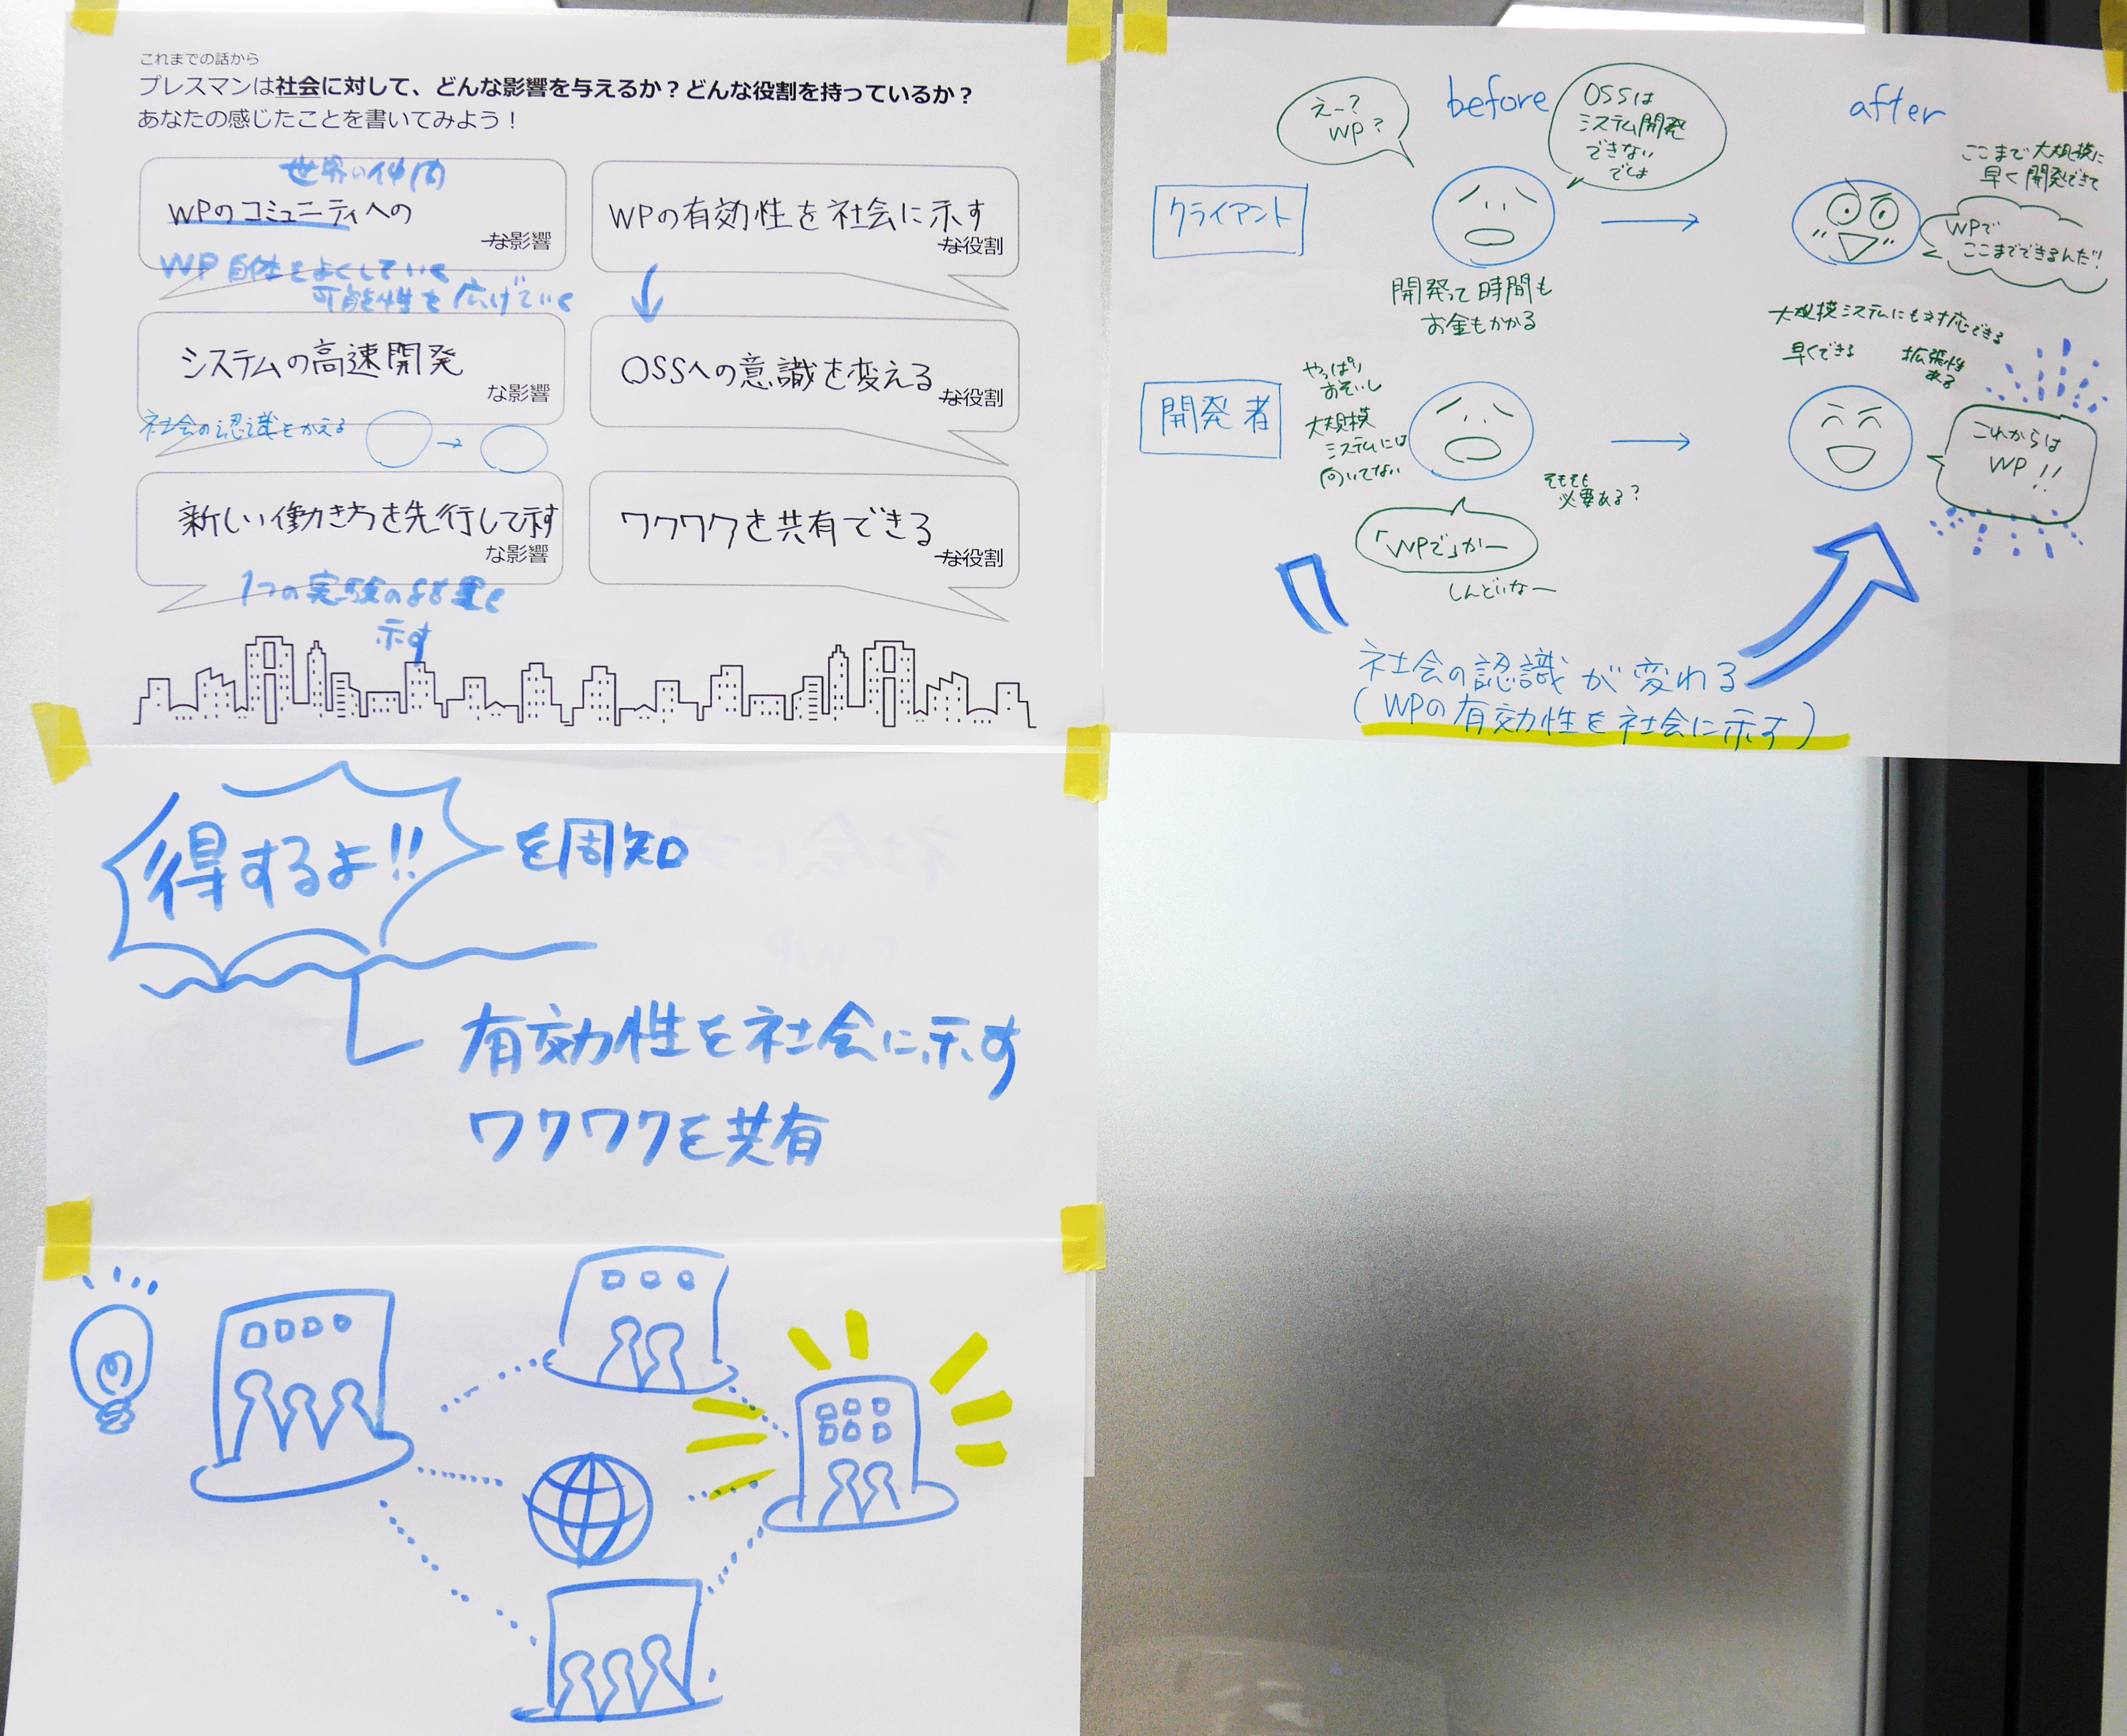 これまでの話から
プレスマンは社会に対して、どんな影響を与えるか？どんな役割を持っているか？
あなたの感じたことを書いてみよう！
世界の仲間
WPのコミュニティへの
な影響
WP自体をよくしていく
可能性を広げていく
システムの高速開発
な影響
社会の認識をかえる
新しい働き方を先行して示す
な影響
1つの実験の
示す
WPの有効性を社会に示す
な役割
OSSへの意識を変える
な役割
ワクワクを共有できる
な役割
before
after
クライアント
えー？
WP？
OSSは
システム開発
できない
でしょ
開発って時間も
お金もかかる
ここまで大規模に
早く開発できて
WPで
ここまでできるんだ!!
開発者
やっぱり
おそいし
大規模
システムには
向いてない
そもそも
必要ある？
「WPで」かー
しんどいなー
大規模システムにも対応できる
早くできる
拡張性
ある
これからは
WP!!
社会の認識が変わる
(WPの有効性を社会に示す)
得するよ!!
を周知
有効性を社会に示す
ワクワクを共有